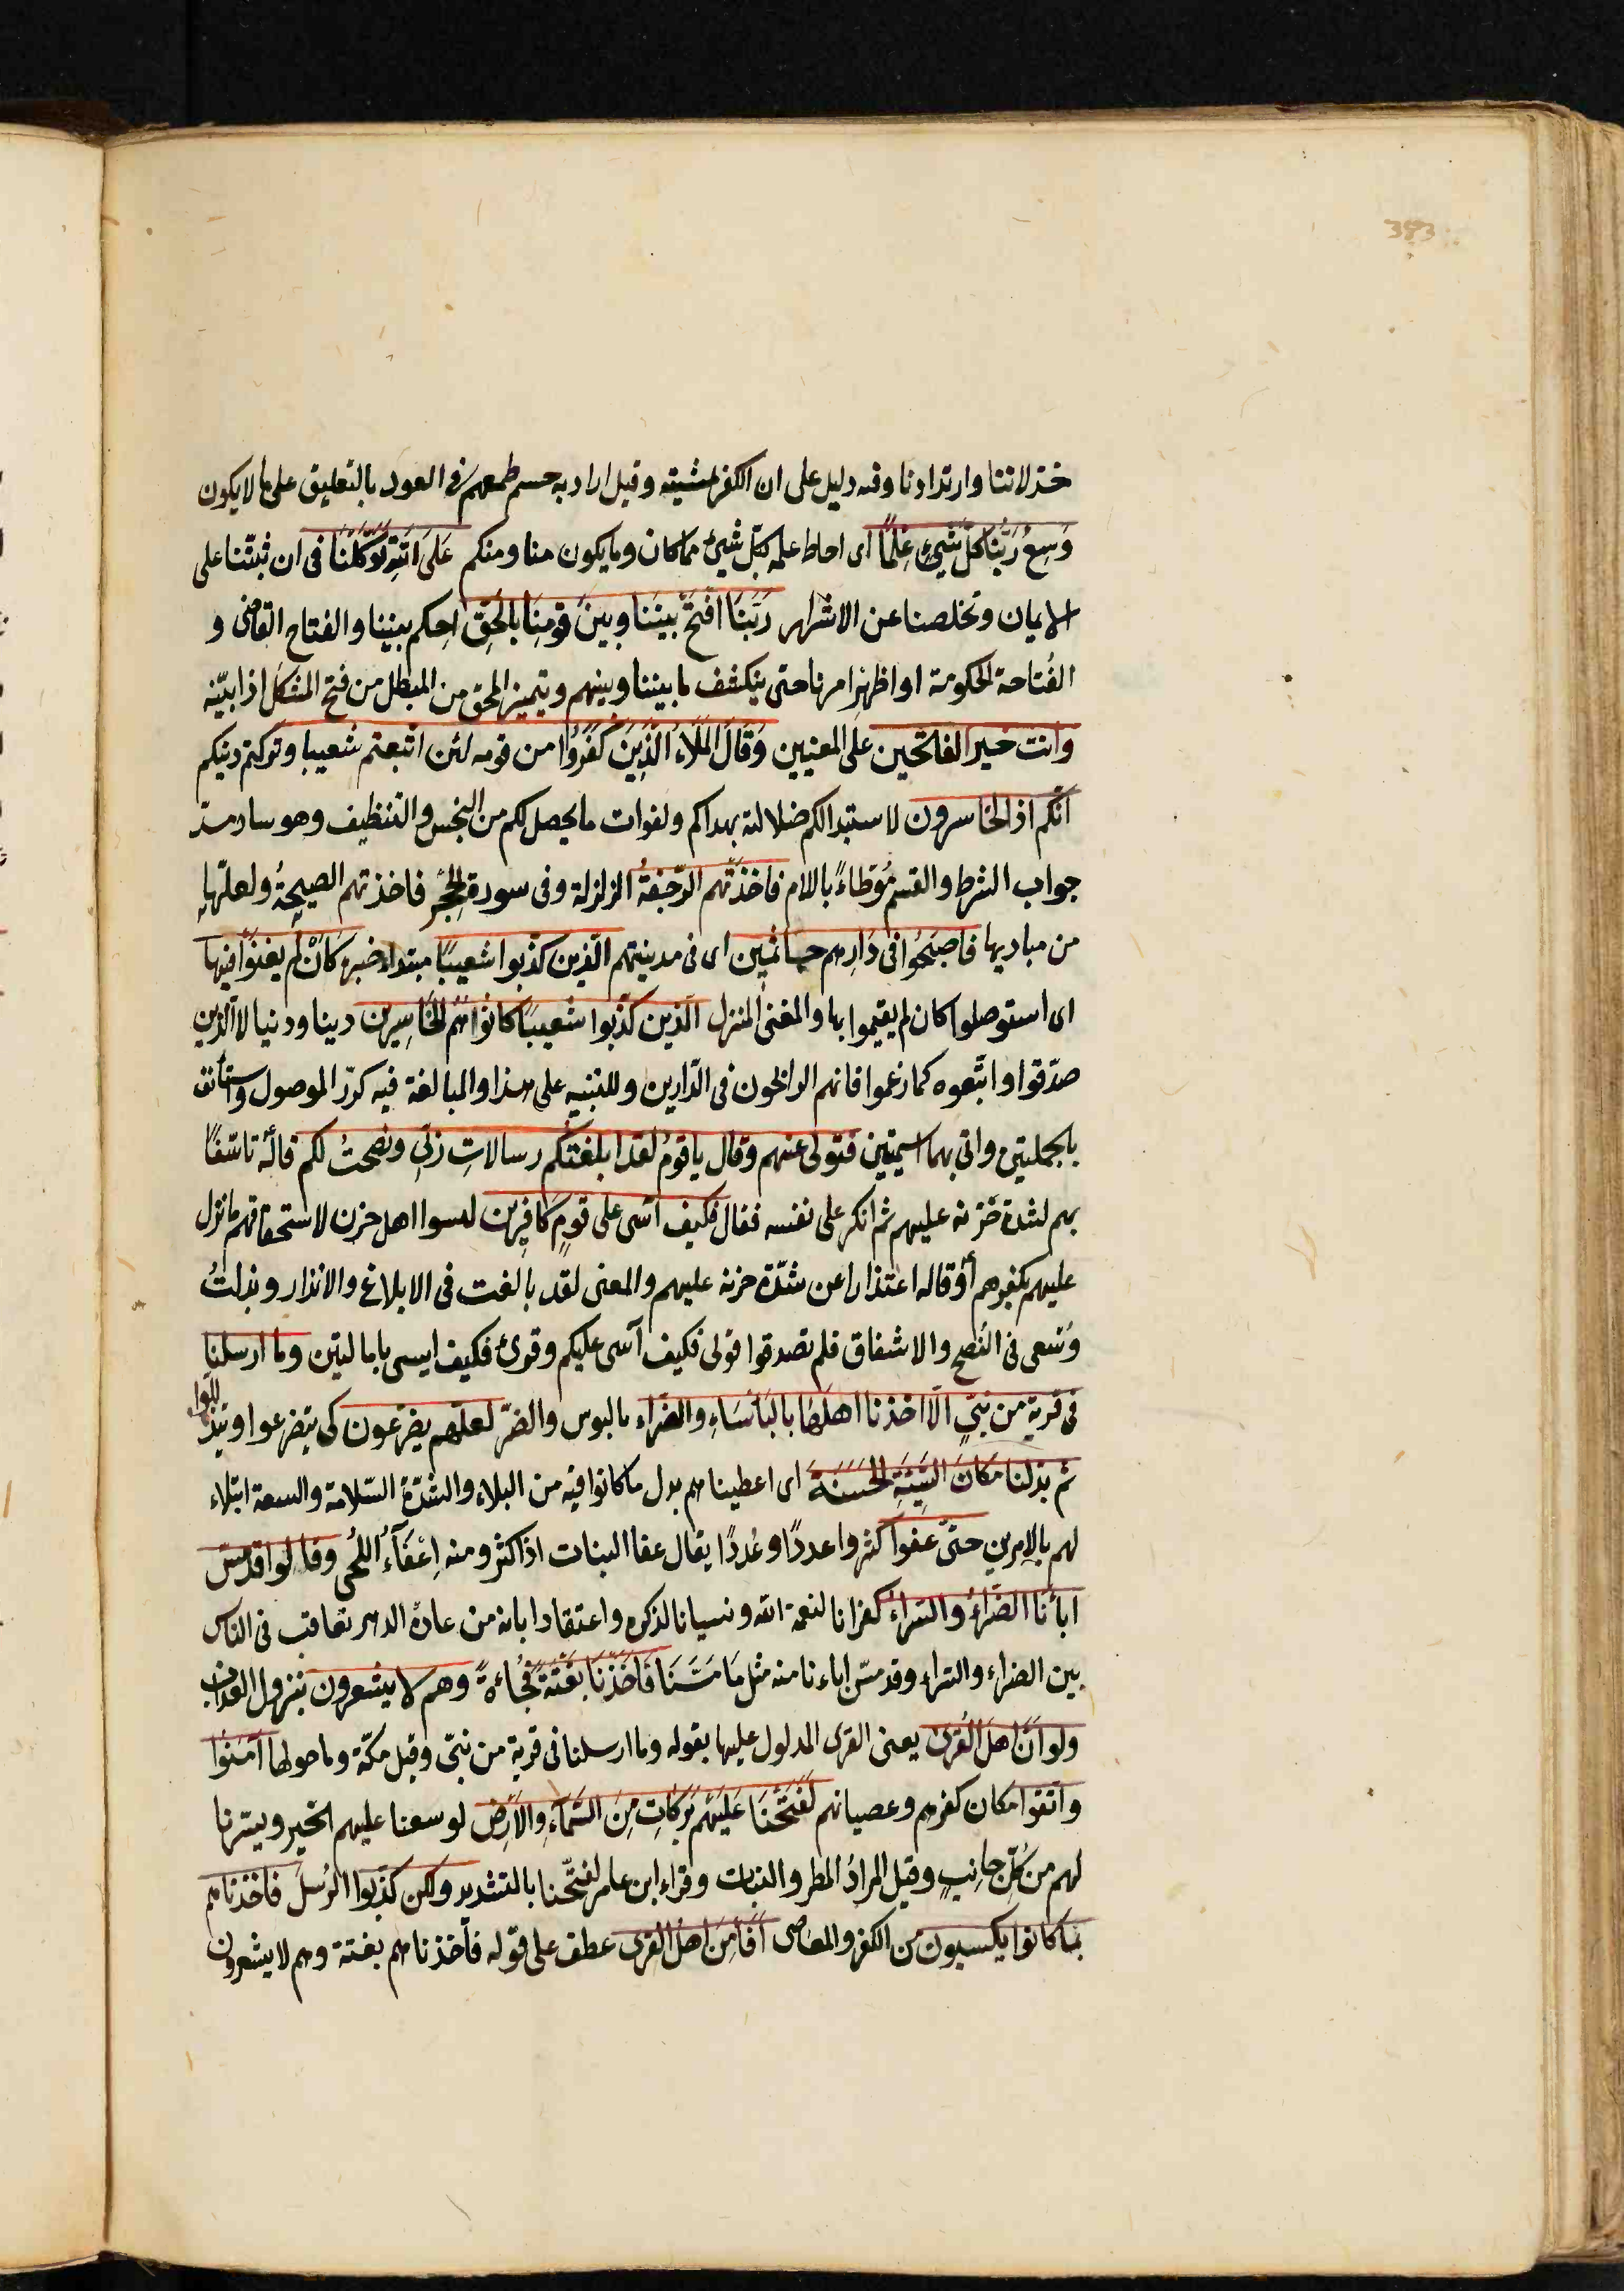 393
خذلاننا وارتدادنا وفيه دليل على ان الكفر بمشيته وقيل اراد به حسم طمعهم فى العود بالتعليق على ما لا يكون
وَسِعَ رَبُّنَا كُلَّ شَيْءٍ عِلْمًا اى احاط علمه بكل شيئ مما كان وما يكون منا ومنكم عَلَى اللهِ تَوَكَّلْنَا فى ان يثبتنا على
الايمان وتخلصنا عن الاشرار رَبَّنَا افْتَحْ بَيْنَنَا وبينَ قومِنَا بالحَقِّ احكم بيننا والفتاح القاضى و
الفُتاحة الحكومة او اظهر امرنا حتى ينكشف ما بيننا وبينهم ويتميز المحق من المبطل من فتح المشكل اذا بيّنه
وانت خير الفاتحين على المعنيين وَقَالَ المَلَاءُ الَّذِينَ كَفَرُوا من قومه لئن اتبعتم شعيبا وتركتم دينكم
انكم اذا لخاسرون لاستبدالكم ضلالته بهداكم ولفوات ما يحصل لكم من البخس والتنظيف وهو ساد مسدّ
جواب الشرط والقسم مُوَطاءً باللام فاخذتهم الرّجفةُ الزلزلة وفى سورة الحِجْر فاخذتهم الصيحةُ ولعلّها
من مباديها فاصبَحُوا فى دَارِهم جاثمين اى فى مدينتهم الّذين كذّبوا شعيبًا مبتداء خبره كَاَنْ لم يغنَوْا فيها
اى استوصلوا كان لم يقيموا بها والمغنى المنزل الّذين كذّبوا شعيبًا كانُوا هُمُ الخَاسِرين دينا ودنيا لا الّذين
صدّقوا واتّبعوه كما زعموا فانهم الرابحون فى الدّارين وللتنبيه على هذا والمبالغة فيه كرّر الموصول واستأنف
بالجملتين واتى بهما اسميتين فتولى عنهم وقال ياقوم لقد ابلغتكم رسالاتِ ربّى ونصحتُ لكم قاله تاسّفًا
بهم لشدة حُزنه عليهم ثم انكر على نفسه فقال فكيف آسى على قومٍ كافِرِين ليسوا اهل حزن لاستحقاقهم ما نزل
عليهم بكفرهم أو قاله اعتذارا عن شدّة حزنه عليهم والمعنى لقد بالغت فى الابلاغ والانذار وبذلتُ
وُسْعى فى النُصح والاشفاق فلم تصدقوا قولى فكيف آسى عليكم وقرئ فكيف ايسى باِمالتين وما ارسلنا
فى قرية من نبىٍ الّا اخذنا اهلَها بالبأسَاءِ والضّراء بالبوس والضرّ لعلّهم يضرّعون كى يتضرعوا ويتذللوا
ثم بدّلنا مَكَانَ السَّيِّئَةِ الحَسَنَةَ اى اعطيناهم بدل ما كانوا فيه من البلاء والشدّة السّلامة والسعة ابتلاء
لهم بالامرين حتىّ عفوا كثروا عددًا وعُددًا يقال عفا النبات اذا كثر ومنه اِعْفَآءُ اللُّحى وقالوا قد مسّ
اباءَنَا الضَّراءُ والسّراءُ كفرانا لنعمة الله ونسيانا لذكره واعتقادا بانه من عادة الدهر تعاقب فى الناس
بين الضراء والسراء وقد مسّ اباءنا منه مثل مَا مَسَّنَا فَاَخَذْنَا بَغْتَةً فُجُاءةً وهم لا يشعرون بنزول العذاب
ولو انّ اهل القُرىٰ يعنى القرى المدلول عليها بقوله وما ارسلنا فى قرية من نبىّ وقيل مكّة وما حولها اٰمَنُوا
واتقوا مكان كفرهم وعصيانهم لَفَتَحْنَا عَلَيْهِم بَركاتٍ مِنَ السَّمَآءِ والاَرْضِ لوسعنا عليهم الخير ويسّرنا
لهم من كلّ جانبٍ وقيل المرادُ المطر والنبات وقراء ابن عامر لفتّحنا بالتشديد ولكن كذّبوا الرُسلَ فاخذناهم
بما كانوا يكسبون من الكفر والمعاصى اَفَاَمِنَ اهلُ القرى عطف على قوله فأخذناهم بغتة وهم لا يشعرون